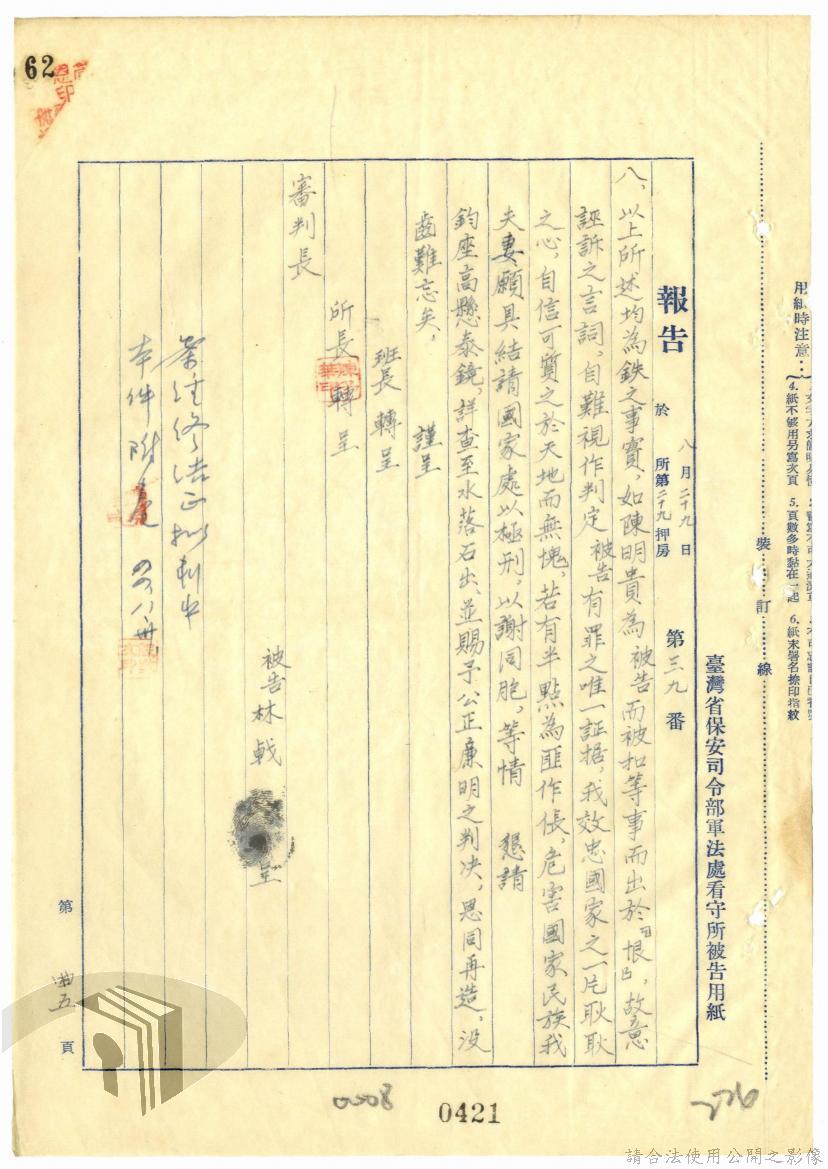 62
用紙時注意：
4.紙不够用另寫次頁
5.頁數多時黏在一起
6.紙末署名捺印指紋
裝訂線
臺灣省保安司令部軍法處看守所被告用紙
報告 於 八月二十九日 所第二十九押房 第三九番
八、以上所述均為鉄之事實，如陳明貴為被告而被扣等事而出於『恨』，故意
誣訴之言詞，自難視作判定被告有罪之唯一証据，我效忠國家之一片耿耿
之心，自信可質之於天地而無愧，若有半點為匪作倀，危害國家民族我
夫妻願具結請國家處以極刑，以謝同胞，等情 懇請
鈞座高懸泰鏡，詳查至水落石出、並賜予公正廉明之判決，恩同再造，没
齒難忘矣， 謹呈
班長轉呈
所長轉呈
審判長
被告林戟 呈
本件附卷
第 五 頁
0008
0421
請合法使用公開之影像